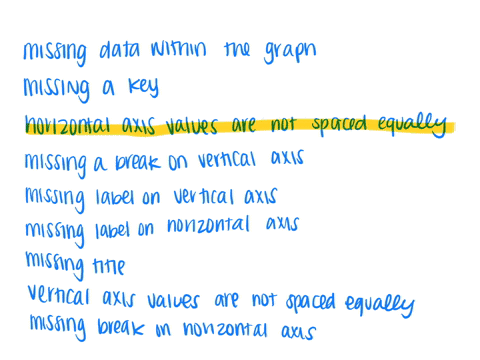 missing data within the graph
missing a key
horizontal axis values are not spaced equally
missing a break on vertical axis
missing label on vertical axis
missing label on horizontal axis
missing title
vertical axis values are not spaced equally
missing break on horizontal axis